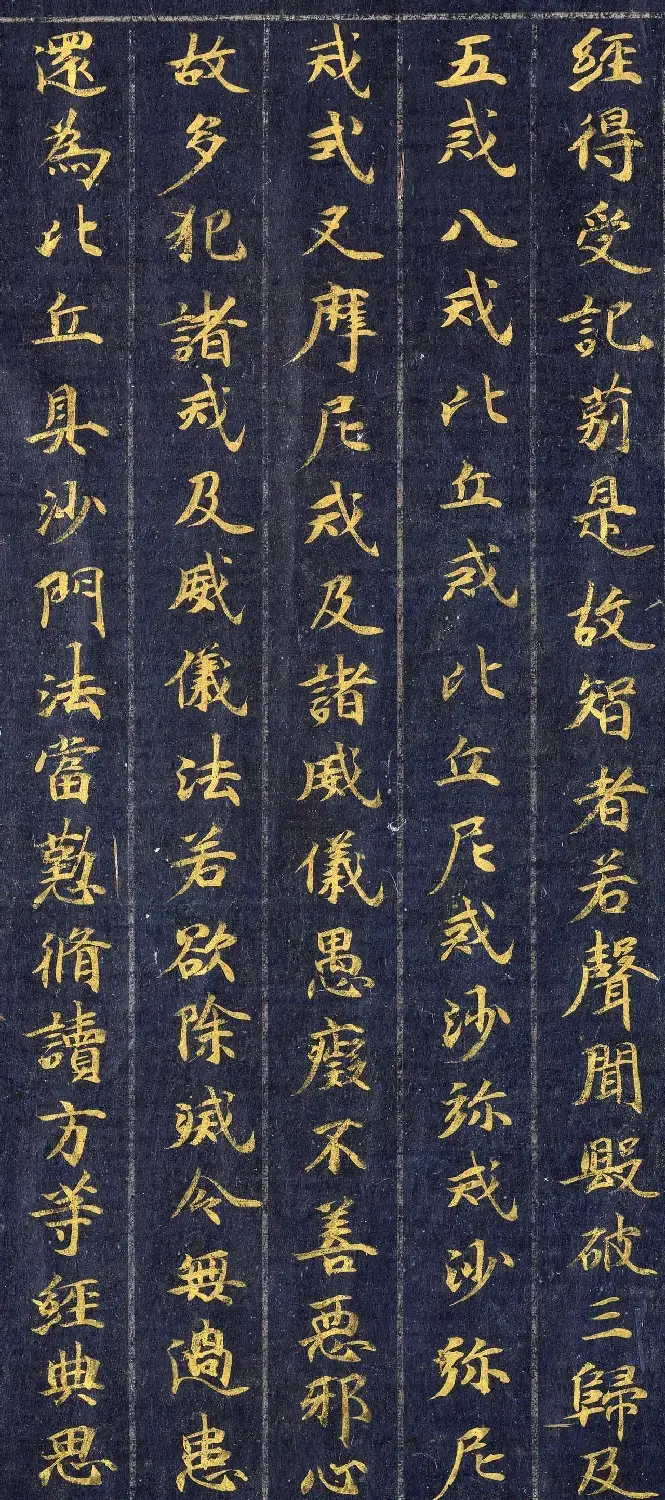 經得受記莂是故智者若聲聞毀破三歸及
五戒八戒比丘戒比丘尼戒沙弥戒沙弥尼
戒式叉摩尼戒及諸威儀愚癡不善惡邪心
故多犯諸戒及威儀法若欲除滅令無過患
還為比丘具沙門法當懃脩讀方等經典思